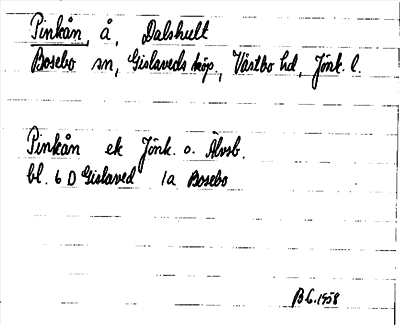 Pinkån, å, Dalshult
Bosebo sn, Gislaveds köp., Västbo hd, Jönk. l.
Pinkån ek Jönk. o. Älvsb.
bl. 6 D Gislaved 1a Bosebo
B.L. 1958